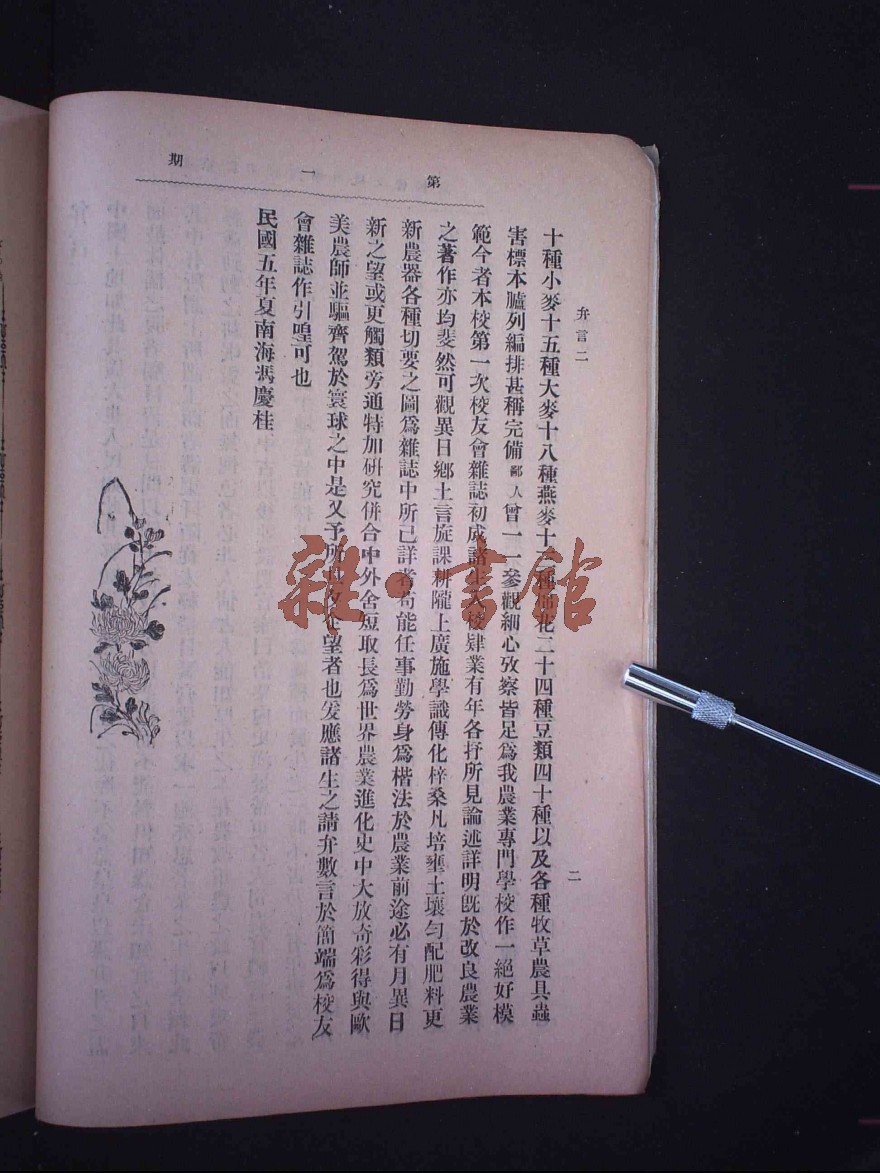 第一期
弁言二
十種小麥十五種大麥十八種燕麥十二種棉花二十四種豆類四十種以及各種牧草農具蟲
害標本臚列編排甚稱完備鄙人曾一一參觀細心攷察皆足爲我農業專門學校作一絕好模
範今者本校第一次校友會雜誌初成諸生入校肄業有年各抒所見論述詳明旣於改良農業
之著作亦均斐然可觀異日鄉土言旋課耕隴上廣施學識傳化梓桑凡培壅土壤勻配肥料更
新農器各種切要之圖爲雜誌中所已詳者苟能任事勤勞身爲楷法於農業前途必有月異日
新之望或更觸類旁通特加硏究併合中外舍短取長爲世界農業進化史中大放奇彩得與歐
美農師並驅齊駕於寰球之中是又予所望者也爰應諸生之請弁數言於簡端爲校友
會雜誌作引喤可也
民國五年夏南海馮慶桂
二
雜·書館